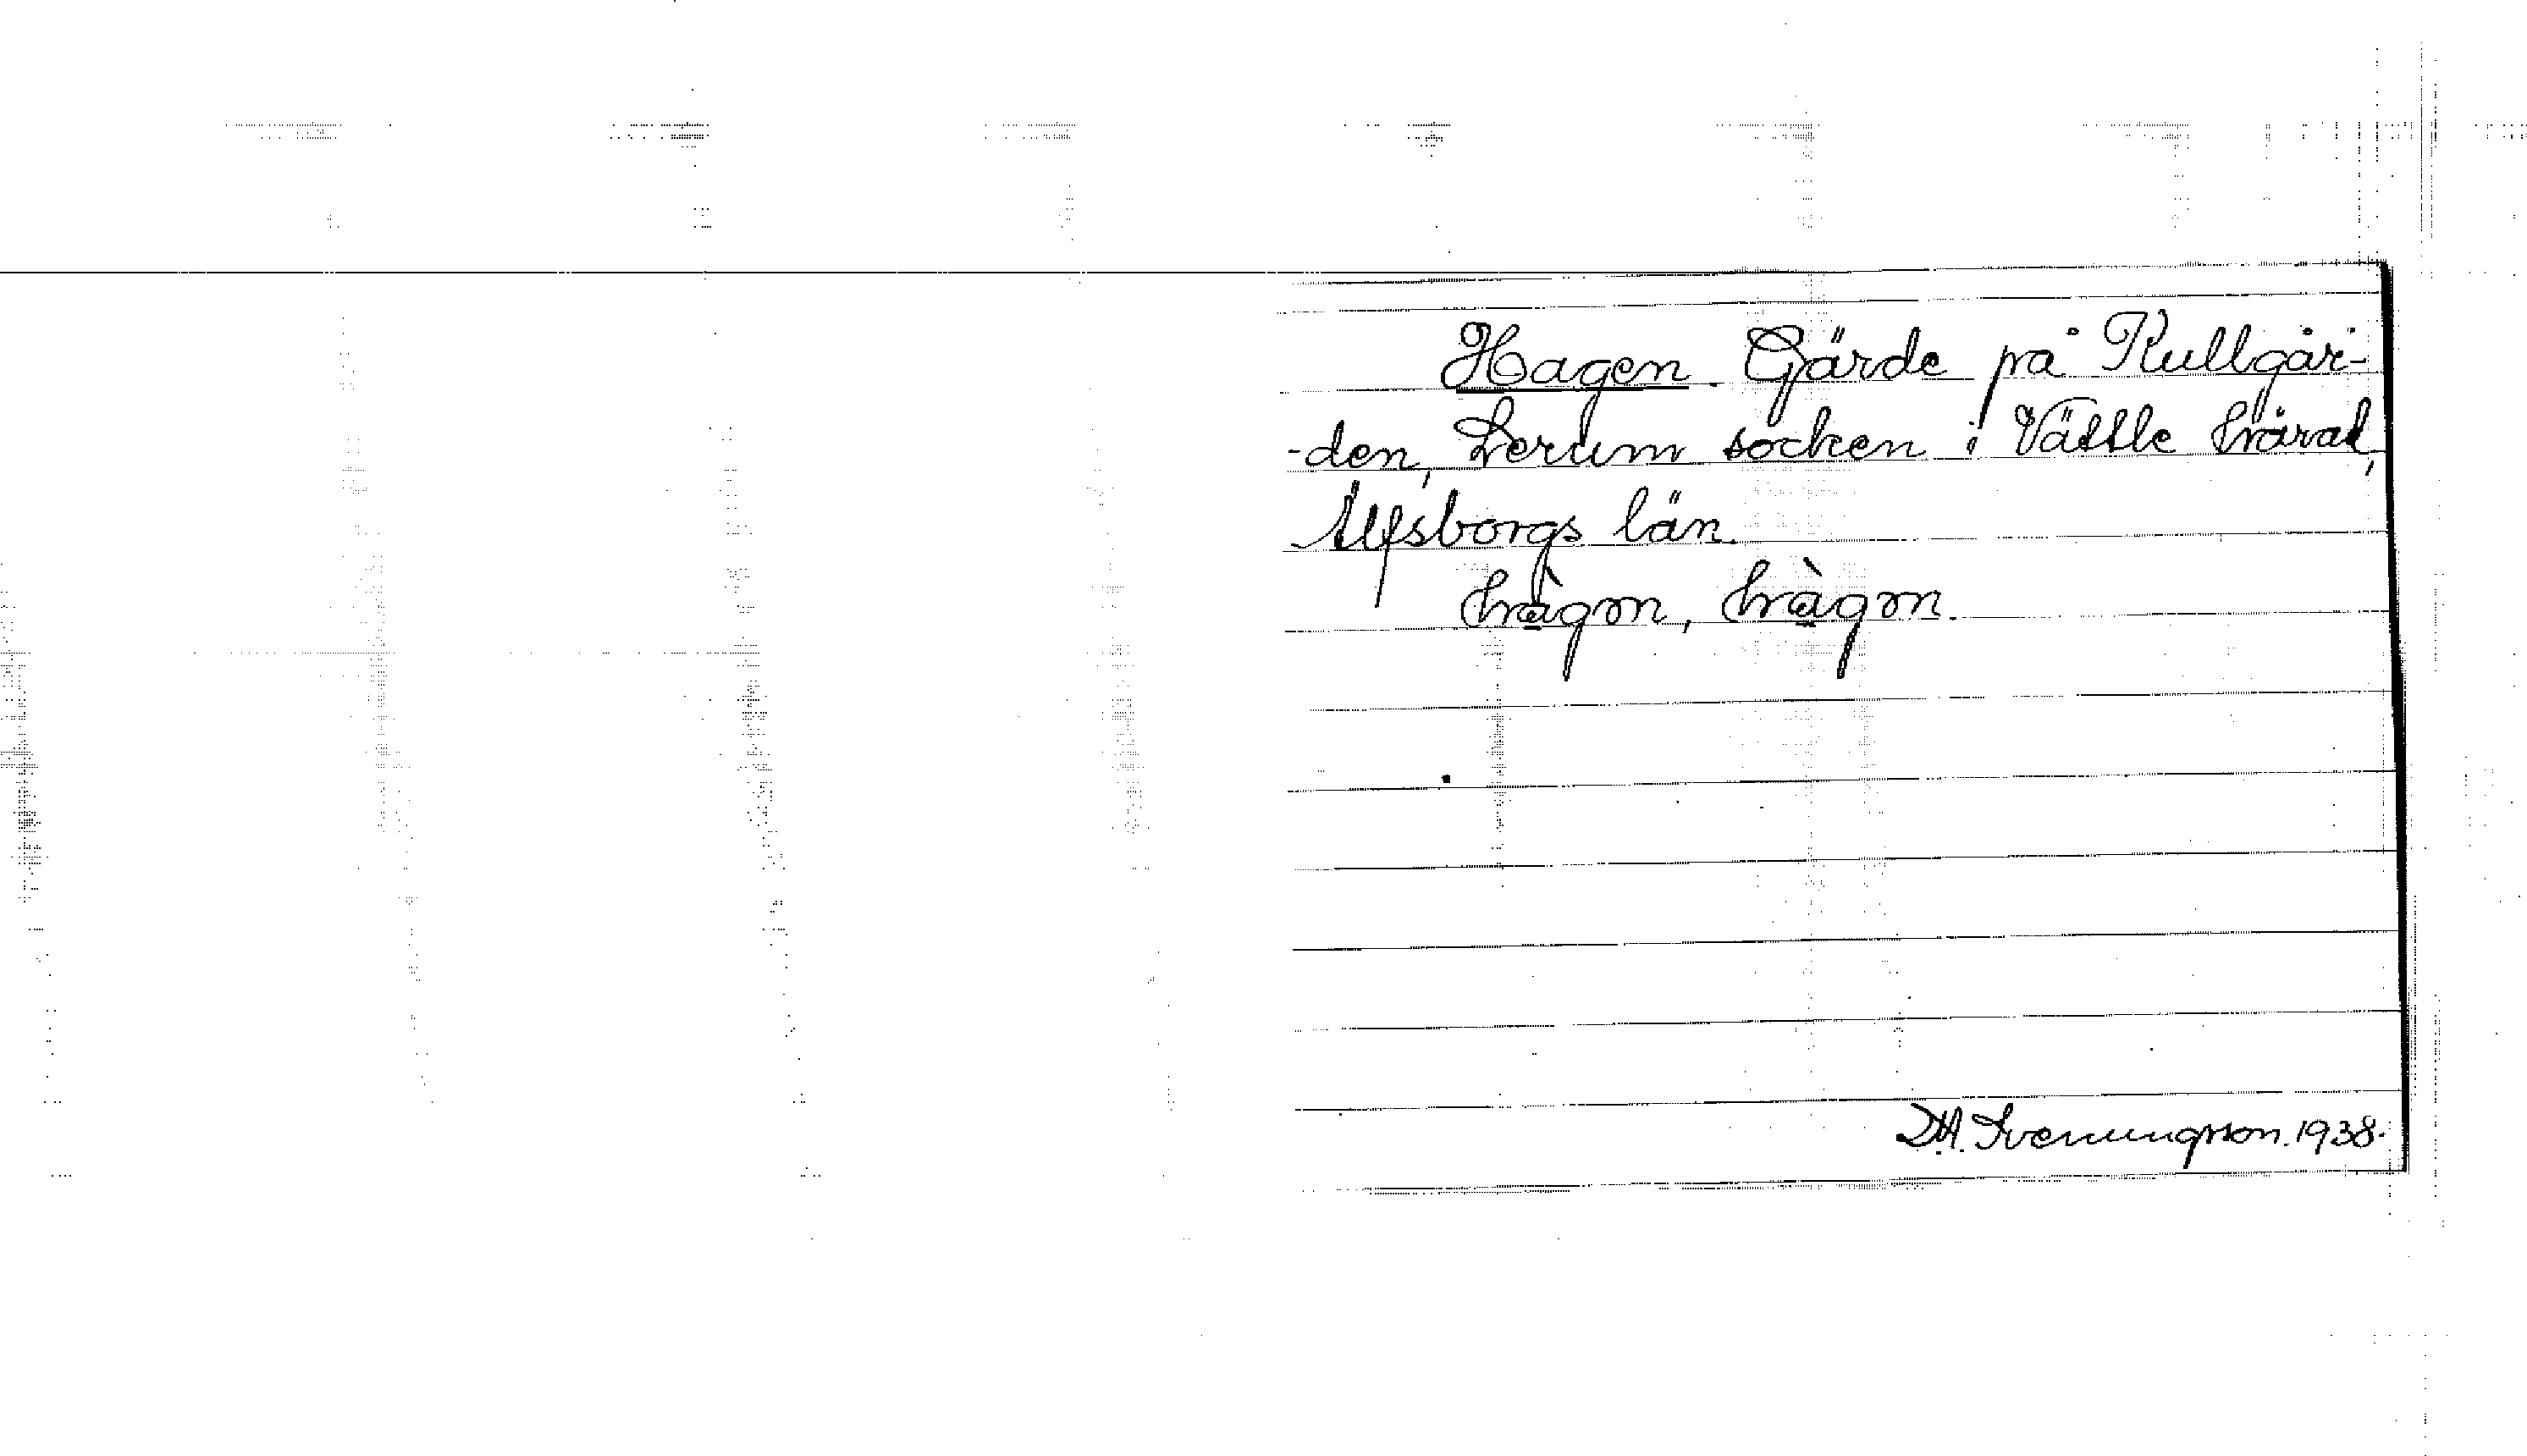 Hagen. Gärde på Kullgår-
-den, Lerum socken i Vättle härad,
Älfsborgs län.
hàgon, hàgon.
Svenungsson. 1938.